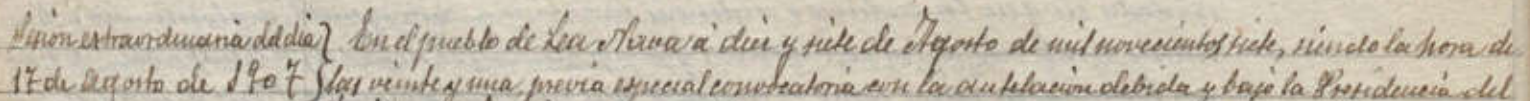 Sesion extraordinaria del dia } En el pueblo de Lea Nava á diez y siete de Agosto de mil novecientos siete, siendo la hora de
17 de Agosto de 1907 } las veinte y una, previa especial convocatoria con la antelacion debida y bajo la Presidencia del